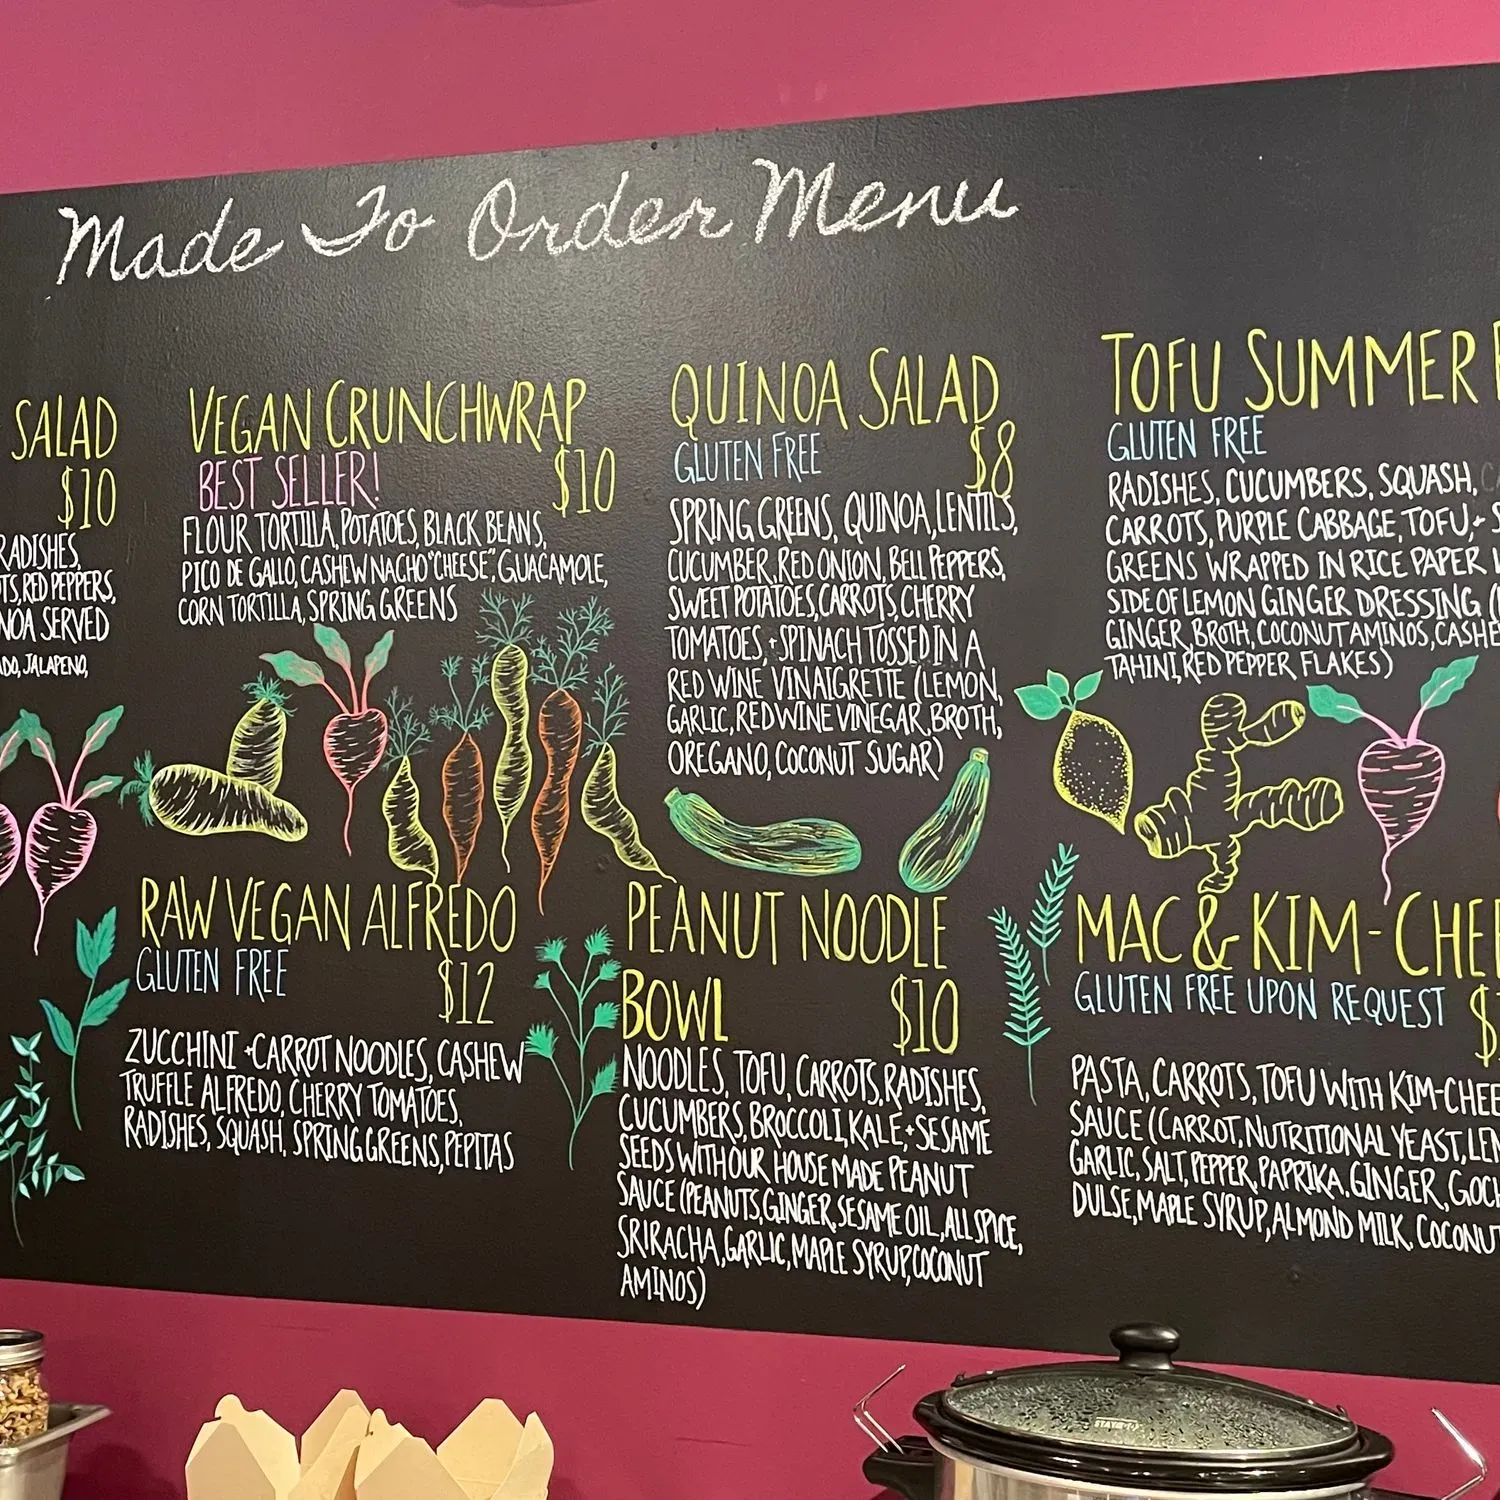 Made To Order Menu
SALAD
$10
RADISHES,
RED PEPPERS,
SERVED
JALAPENO,
VEGAN CRUNCHWRAP
BEST SELLER!
$10
FLOUR TORTILLA, POTATOES, BLACK BEANS,
PICO DE GALLO, CASHEW NACHO "CHEESE", GUACAMOLE,
CORN TORTILLA, SPRING GREENS
QUINOA SALAD
GLUTEN FREE
$8
SPRING GREENS, QUINOA, LENTILS,
CUCUMBER, RED ONION, BELL PEPPERS,
SWEET POTATOES, CARROTS, CHERRY
TOMATOES, + SPINACH TOSSED IN A
RED WINE VINAIGRETTE (LEMON,
GARLIC, RED WINE VINEGAR, BROTH,
OREGANO, COCONUT SUGAR)
TOFU SUMMER
GLUTEN FREE
RADISHES, CUCUMBERS, SQUASH,
CARROTS, PURPLE CABBAGE, TOFU, +
GREENS WRAPPED IN RICE PAPER
SIDE OF LEMON GINGER DRESSING (
GINGER, BROTH, COCONUT AMINOS,
TAHINI, RED PEPPER FLAKES)
RAW VEGAN ALFREDO
GLUTEN FREE
$12
ZUCCHINI + CARROT NOODLES, CASHEW
TRUFFLE ALFREDO, CHERRY TOMATOES,
RADISHES, SQUASH, SPRING GREENS, PEPITAS
PEANUT NOODLE
BOWL $10
NOODLES, TOFU, CARROTS, RADISHES,
CUCUMBERS, BROCCOLI, KALE, + SESAME
SEEDS WITH OUR HOUSE MADE PEANUT
SAUCE (PEANUTS, GINGER, SESAME OIL, ALL SPICE,
SRIRACHA, GARLIC, MAPLE SYRUP, COCONUT
AMINOS)
MAC & KIM-CHEE
GLUTEN FREE UPON REQUEST
PASTA, CARROTS, TOFU WITH KIM-CHEE
SAUCE (CARROT, NUTRITIONAL YEAST,
GARLIC, SALT, PEPPER, PAPRIKA, GINGER,
DULSE, MAPLE SYRUP, ALMOND MILK, COCONUT